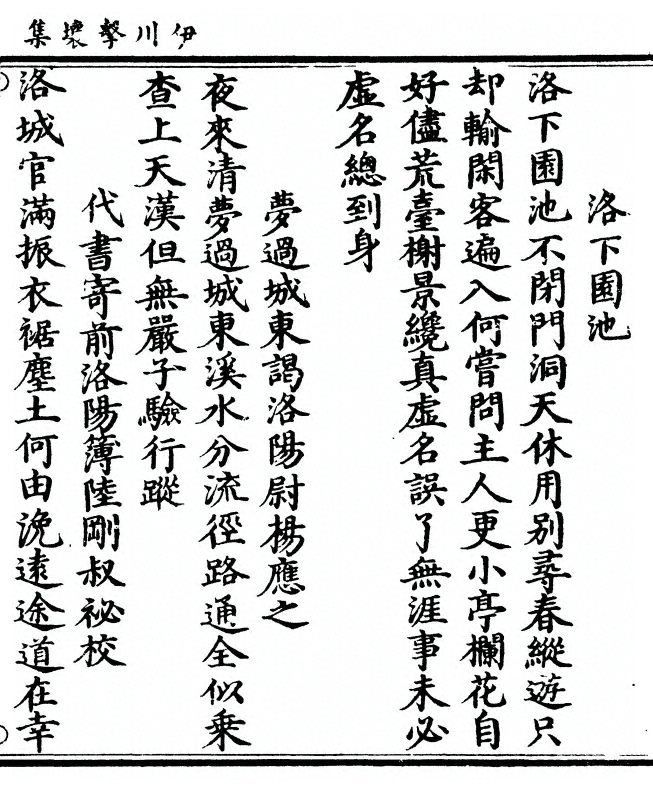 伊川擊壤集
洛下園池
洛下園池不閉門洞天休用別尋春縱遊只
却輸閑客遍入何嘗問主人更小亭欄花自
好儘荒臺榭景纔真虛名誤了無涯事未必
虛名總到身
夢過城東謁洛陽尉楊應之
夜來清夢過城東溪水分流徑路通全似乗
查上天漢但無嚴子驗行蹤
代書寄前洛陽簿陸剛叔祕校
洛城官滿振衣裾塵土何由浼遠途道在幸